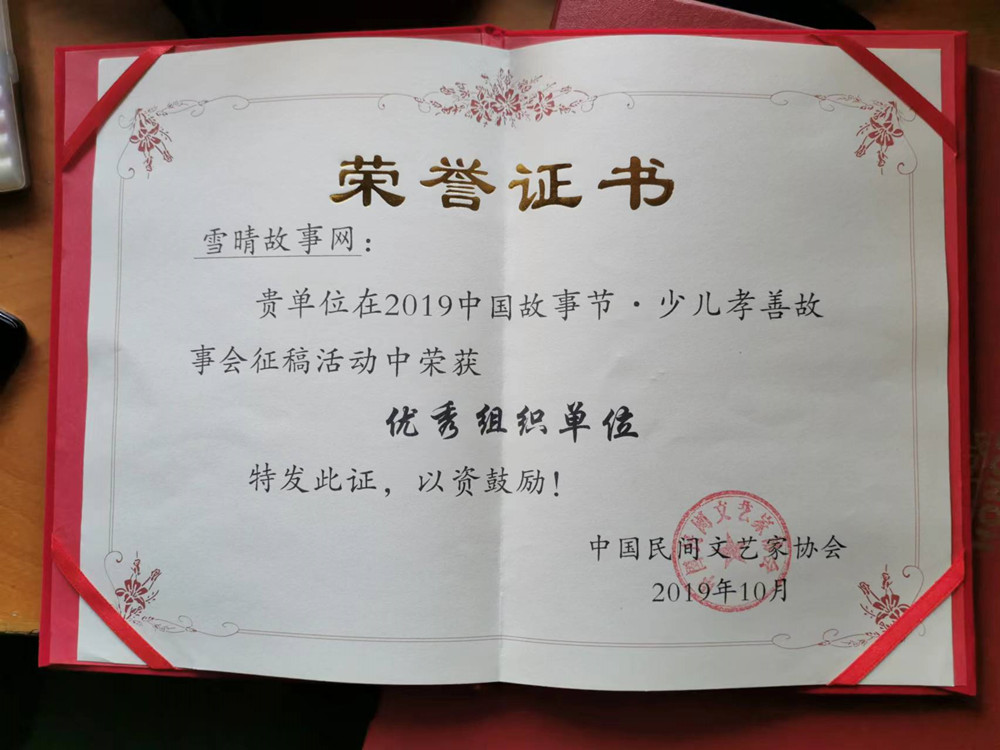 荣誉证书
雪晴故事网：
贵单位在2019中国故事节·少儿孝善故
事会征稿活动中荣获
优秀组织单位
特发此证，以资鼓励！
中国民间文艺家协会
2019年10月